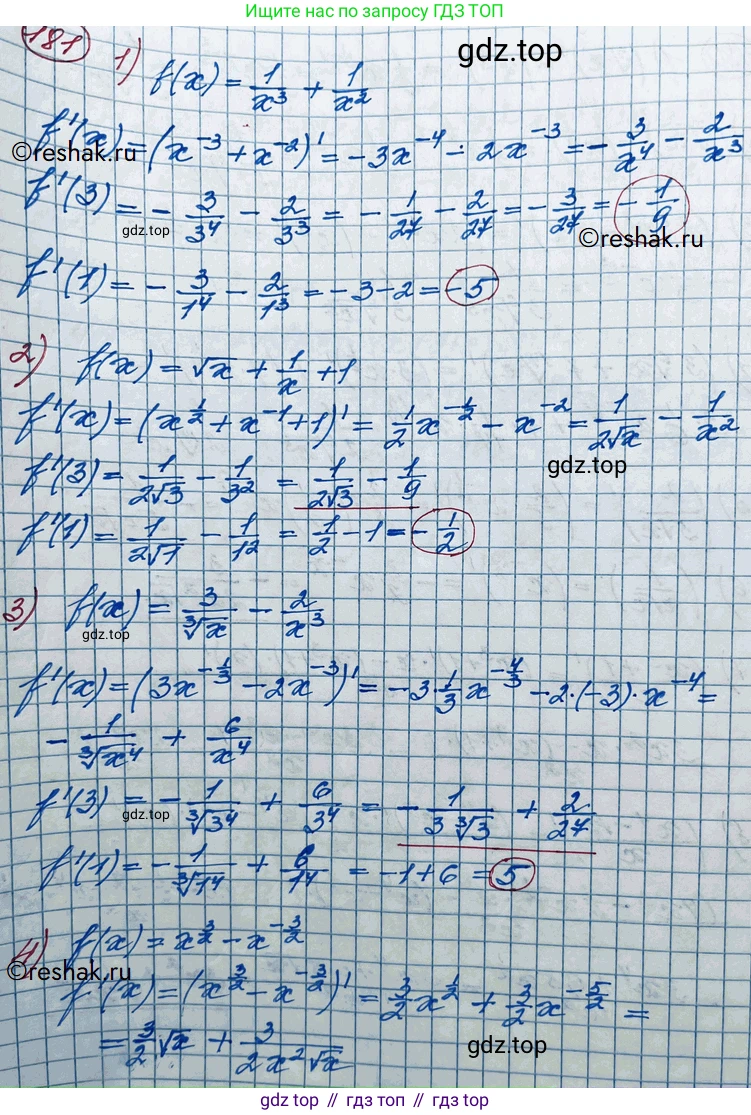 Ищите нас по запросу ГДЗ ТОП
181
gdz.top
1) f(x) = 1/x³ + 1/x²
f'(x) = (x⁻³ + x⁻²)' = -3x⁻⁴ - 2x⁻³ = -3/x⁴ - 2/x³
©reshak.ru
f'(3) = -3/3⁴ - 2/3³ = -1/27 - 2/27 = -3/27 = -1/9
gdz.top
©reshak.ru
f'(1) = -3/1⁴ - 2/1³ = -3-2 = -5
2) f(x) = √x + 1/x + 1
f'(x) = (x^(1/2) + x⁻¹ + 1)' = 1/2 x^(-1/2) - x⁻² = 1/(2√x) - 1/x²
f'(3) = 1/(2√3) - 1/3² = 1/(2√3) - 1/9
gdz.top
f'(1) = 1/(2√1) - 1/1² = 1/2 - 1 = -1/2
3) f(x) = 3/∛x - 2/x³
gdz.top
f'(x) = (3x^(-1/3) - 2x⁻³)' = -3·1/3 x^(-4/3) - 2·(-3)·x⁻⁴ =
-1/∛x⁴ + 6/x⁴
f'(3) = -1/∛3⁴ + 6/3⁴ = -1/(3∛3) + 2/27
gdz.top
f'(1) = -1/∛1⁴ + 6/1⁴ = -1+6 = 5
4) f(x) = x^(3/2) - x^(-3/2)
©reshak.ru
f'(x) = (x^(3/2) - x^(-3/2))' = 3/2 x^(1/2) + 3/2 x^(-5/2) =
= 3/2 √x + 3/(2x²√x)
gdz.top
gdz top // гдз топ // gdz top